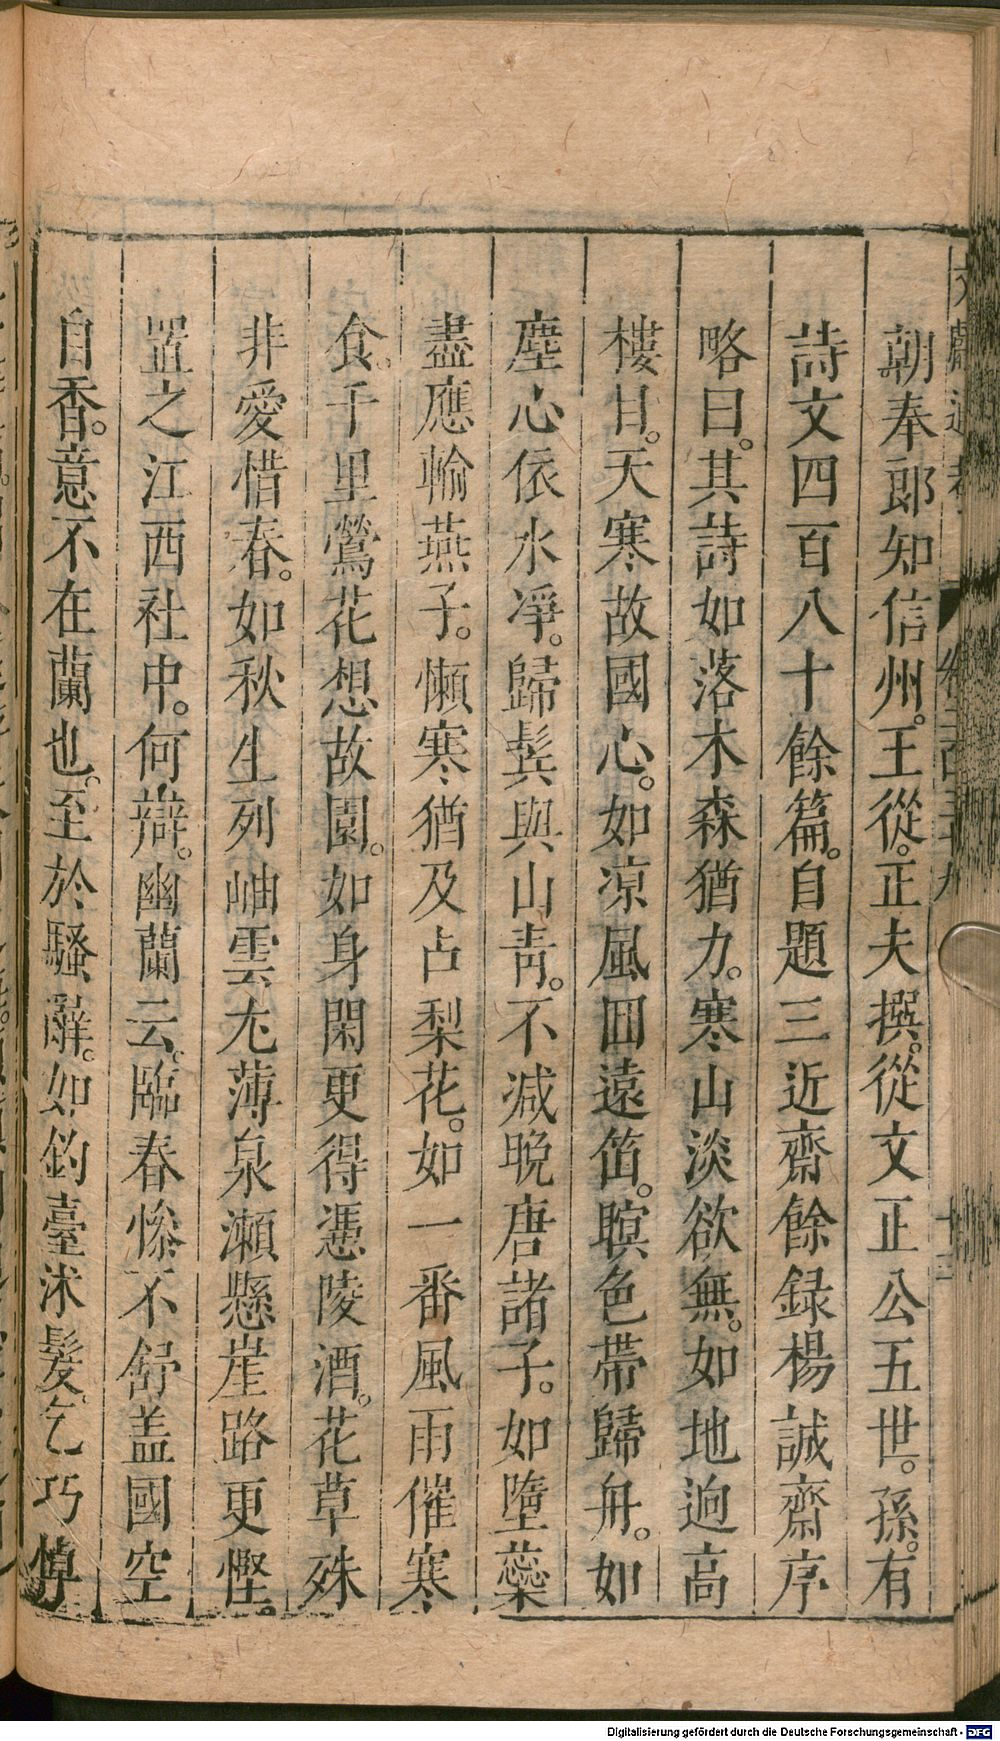 朝奉郎知信州。王從。正夫撰。從文正公五世。孫。有
詩文四百八十餘篇。自題三近齋餘録楊誠齋序
略曰。其詩如落木森猶力。寒山淡欲無。如地迥高
樓甘。天寒故國心。如凉風回遠笛。暝色帶歸舟。如
塵心依水凈。歸鬂與山青。不減晚唐諸子。如墮蘂
盡應輸燕子。懶寒猶及占梨花。如一番風雨催寒
食。千里鶯花想故園。如身閑更得憑陵酒。花草殊
非愛惜春。如秋生列岫雲尢薄泉瀬懸崖路更慳。
置之江西社中。何辯。幽蘭云。臨春慘不舒盖國空
自香。意不在蘭也。至於騷辭。如釣臺沐髮乞巧悼
文獻通考
卷二百三十九
十三
Digitalisierung gefördert durch die Deutsche Forschungsgemeinschaft - DFG